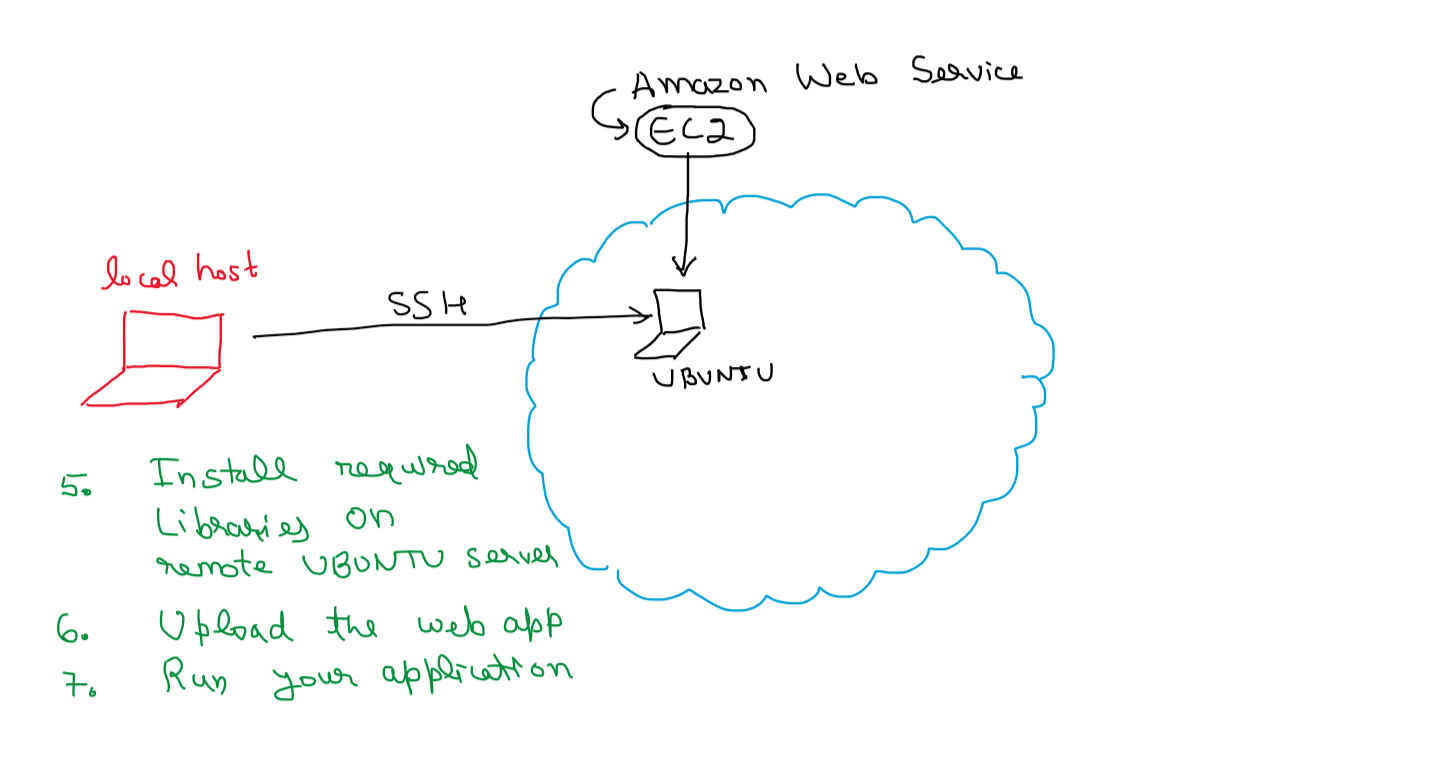 Amazon Web Service
EC2
local host
SSH
UBUNTU
5. Install required
Libraries on
remote UBUNTU server
6. Upload the web app
7. Run your application